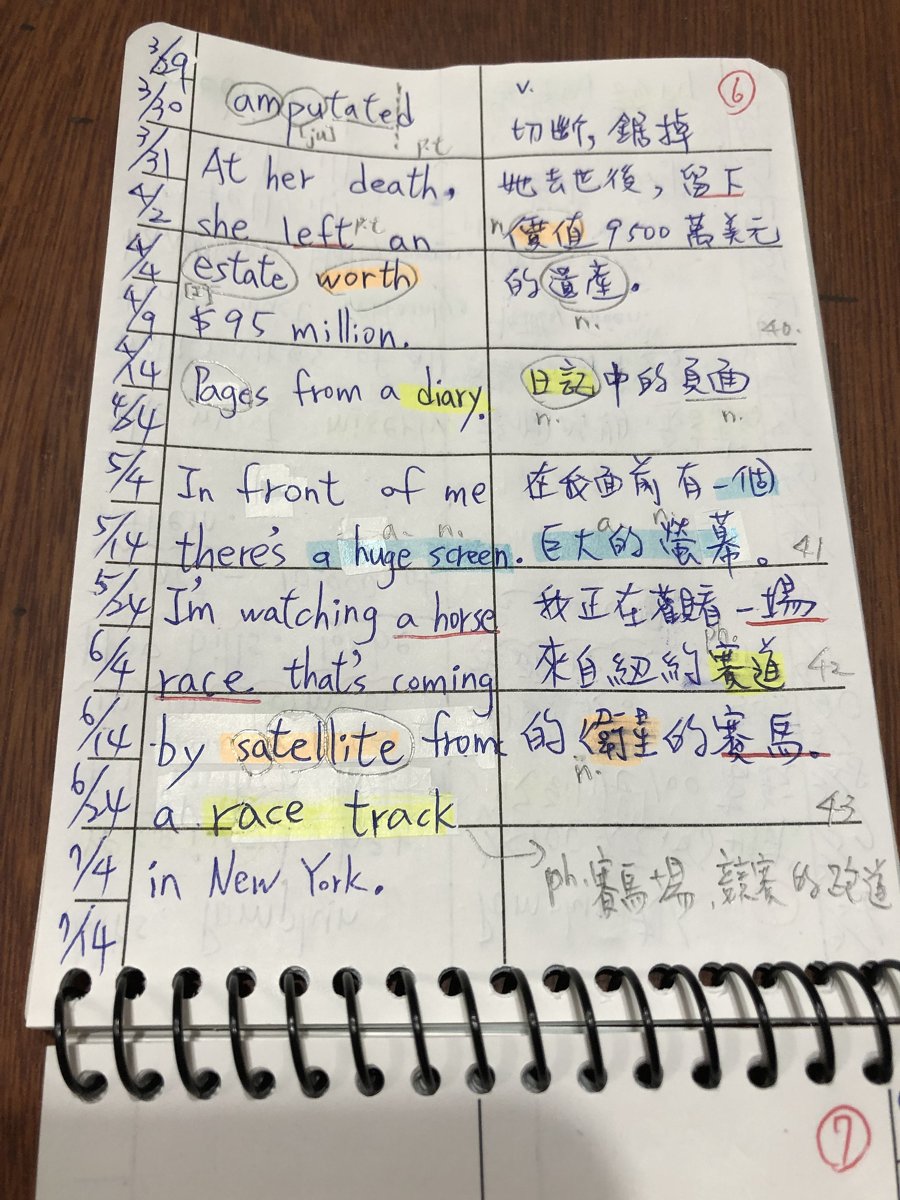 3/29
3/30
3/31
4/2
4/4
4/9
4/14
4/24
5/4
5/14
5/24
6/4
6/14
6/24
7/4
7/14
amputated
[ju]
p.t
At her death,
she left p.t an
estate worth
[ɪ]
$95 million.
Pages from a diary.
In front of me
a. n.
there's a huge screen.
I'm watching a horse
race that's coming
by satellite from
a race track
in New York.
v.
⑥
切斷, 鋸掉
她去世後，留下
n. 價值 9500 萬美元
的遺產。
n.
40.
日記中的頁面
n. n.
在我面前有一個
a. n.
巨大的螢幕。 41
我正在觀看一場
ph.
來自紐約賽道 42
的衛星的賽馬。
n.
43
ph. 賽馬場, 競賽的跑道
⑦